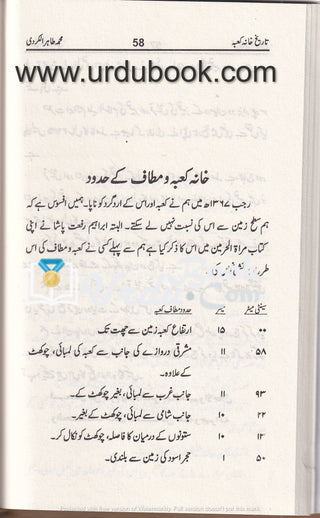 تاریخ خانہ کعبہ
58
محمد طاہر الکردی
www.urdubook.com
خانہ کعبہ و مطاف کے حدود
رجب ۱۳۶۷ھ میں ہم نے کعبہ اور اس کے اردگرد کو ناپا۔ ہمیں افسوس ہے کہ
ہم سطح زمین سے اس کی نسبت نہیں لے سکتے۔ البتہ ابراہیم رفعت پاشا نے اپنی
کتاب مراۃ الحرمین میں اس کا ذکر کیا ہے ہم سے پہلے کسی نے کعبہ و مطاف کی اس
طرح
حدود مطاف کعبہ میٹر سینٹی میٹر
ارتفاع کعبہ زمین سے چھت تک ۱۵ ۰۰
مشرقی دروازے کی جانب سے کعبہ کی لمبائی، چوکھٹ ۱۱ ۵۸
کے علاوہ۔
جانب غرب سے لمبائی، بغیر چوکھٹ کے۔ ۱۱ ۹۳
جانب شامی سے لمبائی، چوکھٹ کے بغیر۔ ۱۰ ۲۲
ستونوں کے درمیان کا فاصلہ، چوکھٹ کو نکال کر۔ ۱۰ ۱۳
حجر اسود کی زمین سے بلندی۔ ۱ ۵۰